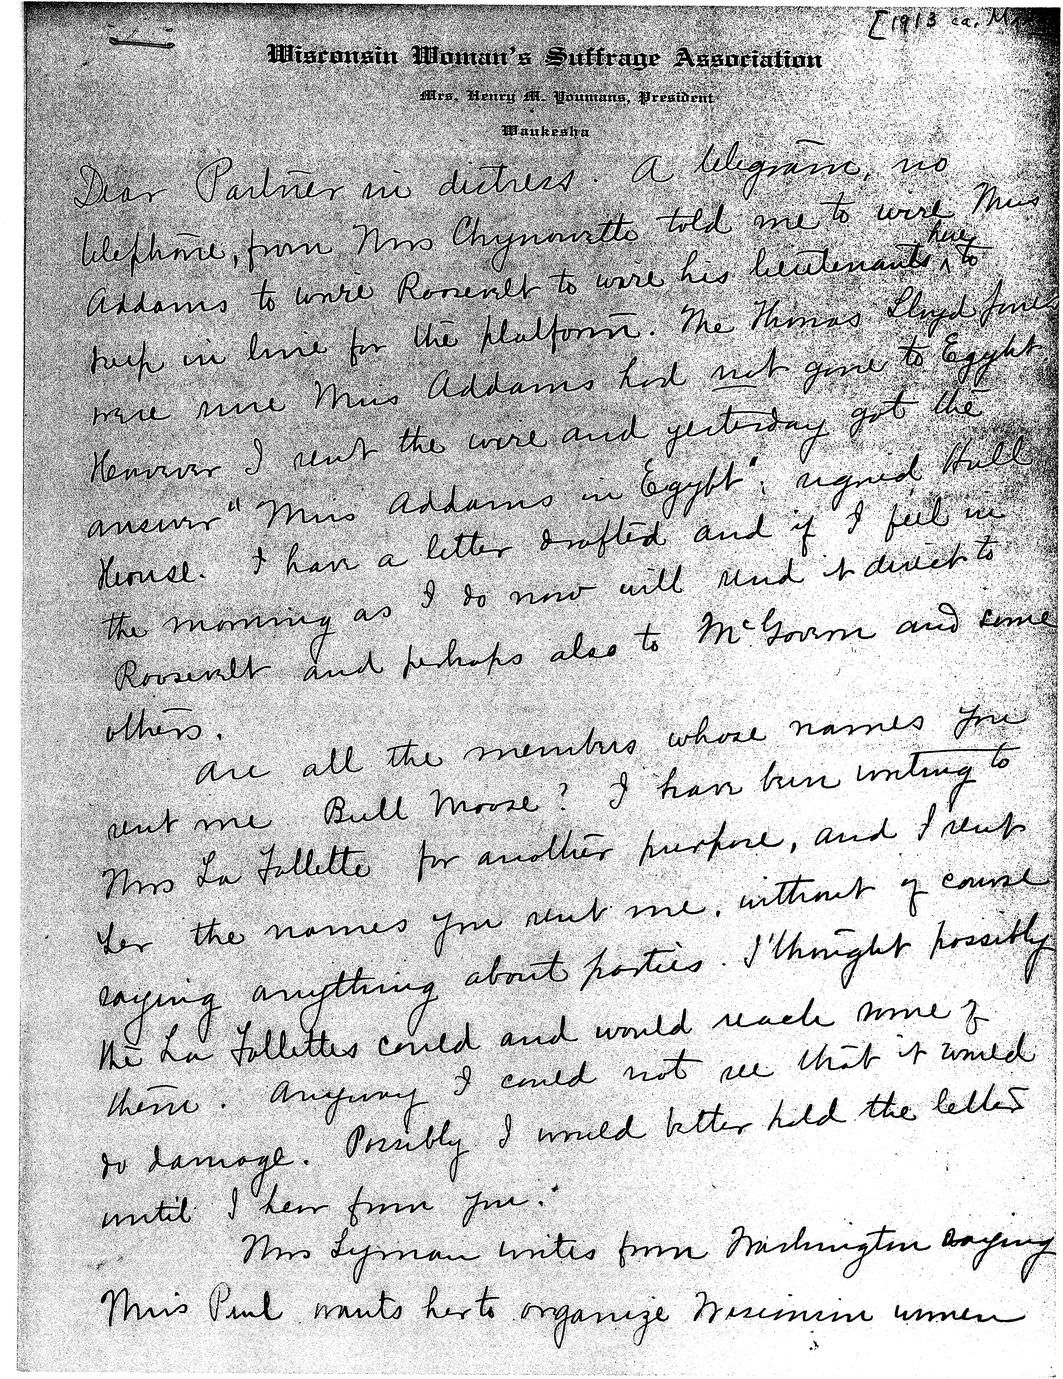 [1913 ca.
Wisconsin Woman's Suffrage Association
Mrs. Henry M. Youmans, President
Waukesha
Dear Partner in distress. A telegram, no
telephone, from Mrs Chynoweth told me to wire Miss
Addams to wire Roosevelt to wire his lieutenants here to
keep in line for the platform. The Thomas Lloyd Jones
were sure Miss Addams had not gone to Egypt.
However I sent the wire and yesterday got the
answer "Miss Addams in Egypt", signed Hull
House. I have a letter drafted and if I feel in
the morning as I do now will send it direct to
Roosevelt and perhaps also to McGovern and some
others.
Are all the members whose names you
sent me Bull Moose? I have been writing to
Mrs La Follette for another purpose, and I sent
her the names you sent me, without of course
saying anything about parties. I thought possibly
the La Follettes could and would reach some of
them. Anyway I could not see that it would
do damage. Possibly I would better hold the letter
until I hear from you.
Mrs Lyman writes from Washington saying
Miss Paul wants her to organize Wisconsin women